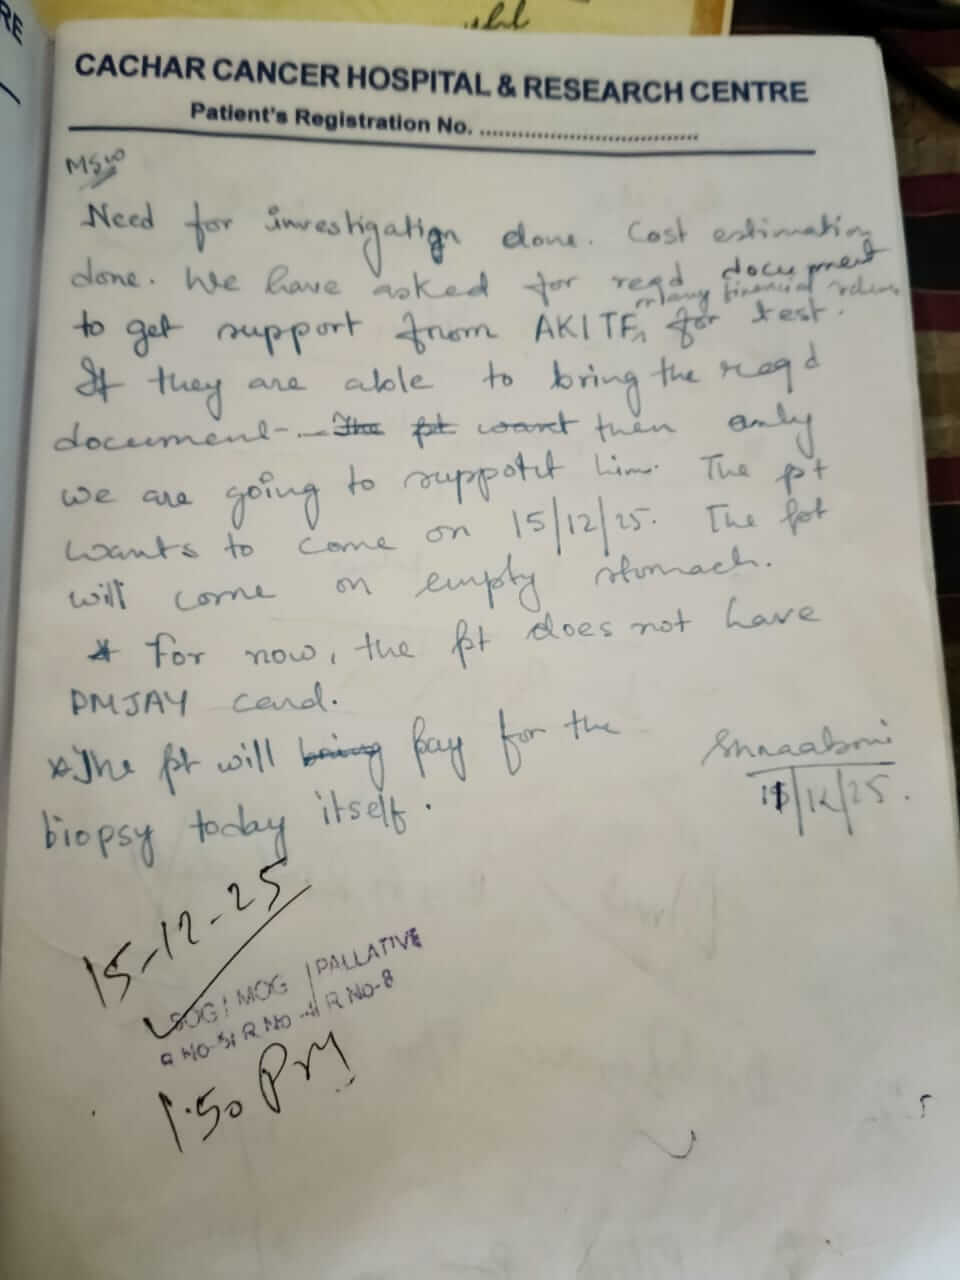 CACHAR CANCER HOSPITAL & RESEARCH CENTRE
Patient's Registration No. ..................................
MSW
Need for investigation done. Cost estimation
done. We have asked for reqd document
many financial
to get support from AKITF, for test.
If they are able to bring the reqd
document- - The pt want then only
we are going to support him. The pt
wants to come on 15/12/25. The pt
will come on empty stomach.
* For now, the pt does not have
PMJAY card.
* The pt will bring pay for the
biopsy today itself.
/12/25.
15-12-25
SOG | MOG | PALLATIVE
R NO-5 | R NO | R NO-8
1.50 PM